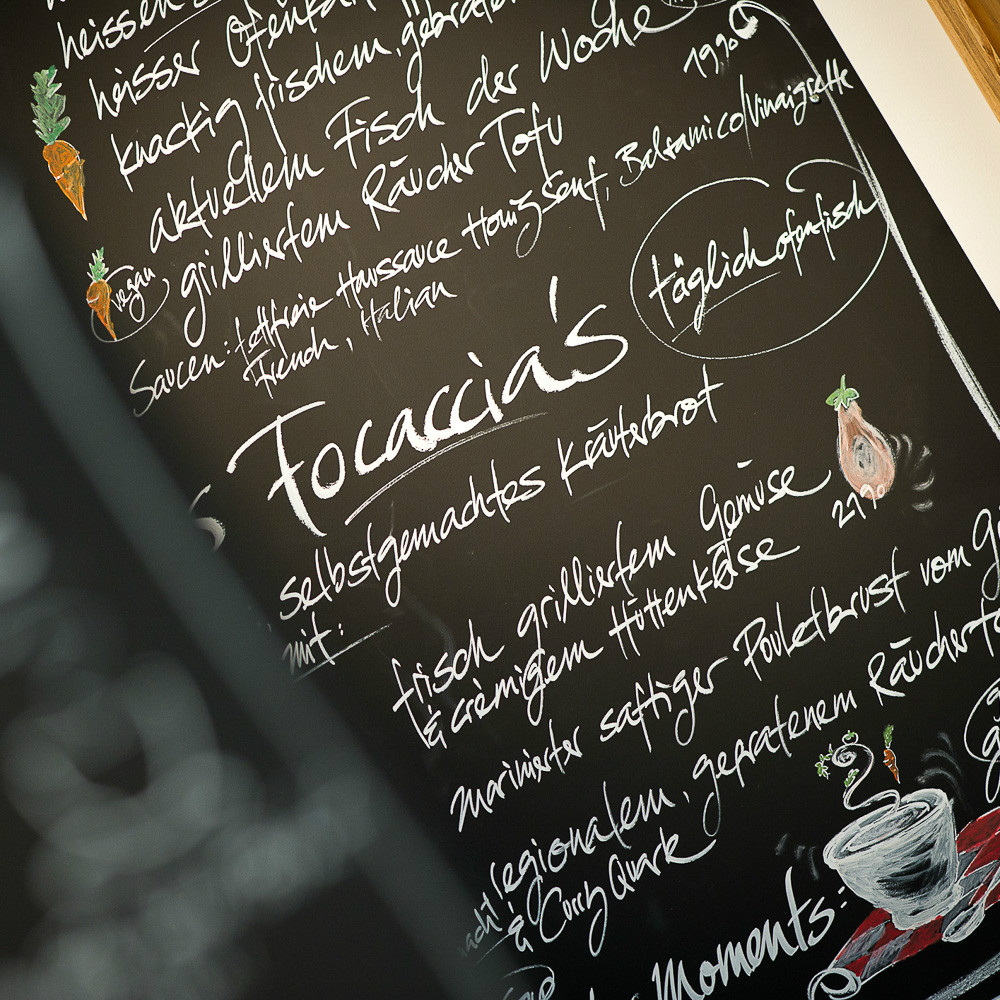 heissen
heisser Ofenkar
knackig frischem, gebraten
aktuellem Fisch der Woche
19.90
grilliertem Räucher Tofu
vegan
Saucen: fettfreie Haussauce Honigsenf, Balsamico/Vinaigrette
French, Italian
täglich ofenfrisch
Focaccia's
selbstgemachtes Kräuterbrot
mit:
frisch grilliertem Gemüse
& crèmigem Hüttenkäse
21.90
marinierter saftiger Pouletbrust vom G
regionalem, gebratenem Räucherto
& Curry Quark
Moments: